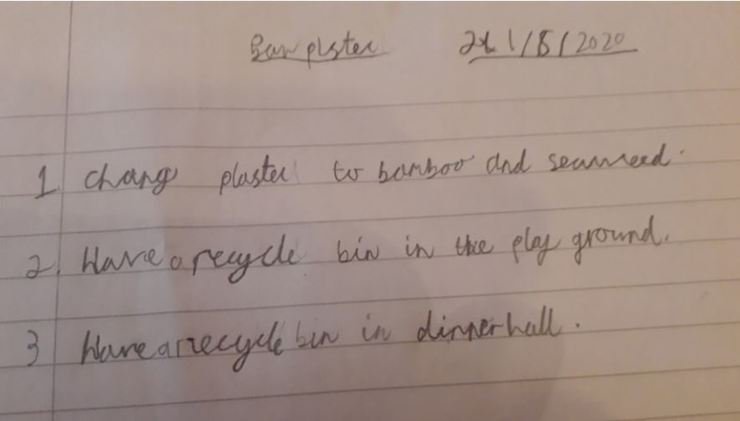 Ban plster 21/5/2020
1 chang plaster to bamboo and seaweed.
2 Have a recycle bin in the play ground.
3 Have a recycle bin in dinner hall.